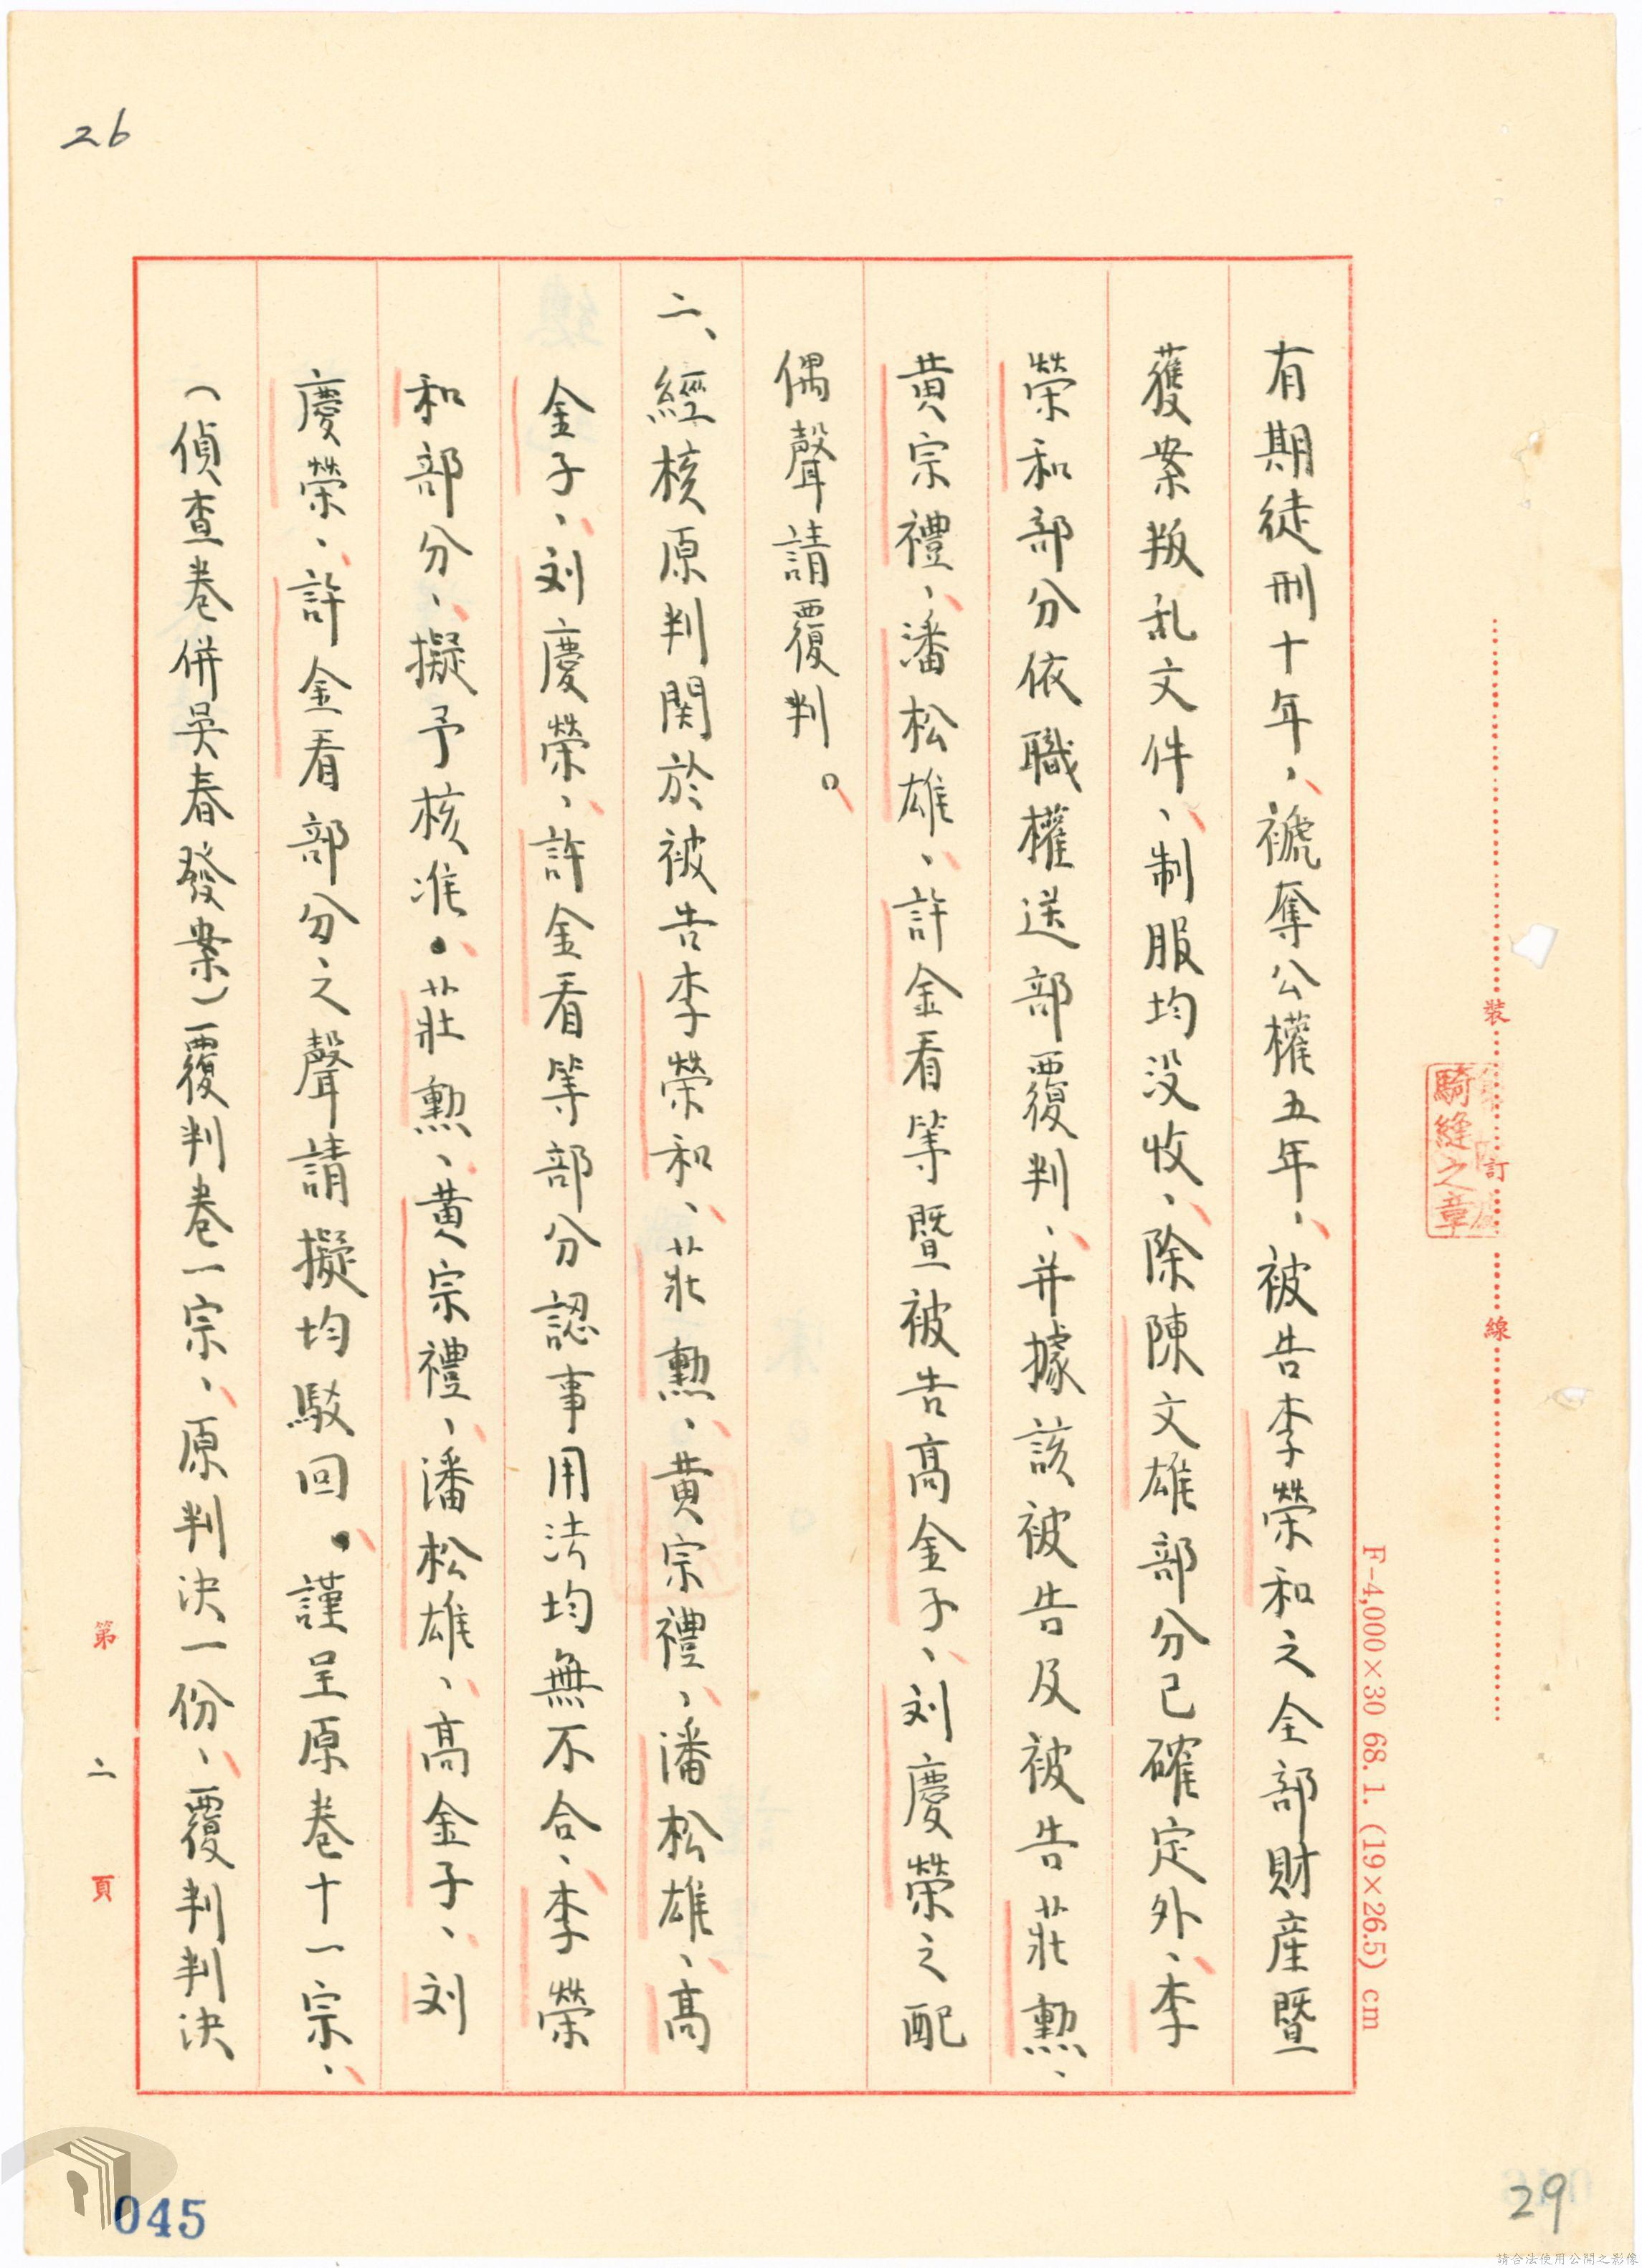 26
有期徒刑十年、褫奪公權五年、被告李榮和之全部財産暨
獲案叛乱文件、制服均没收、除陳文雄部分已確定外、李
榮和部分依職權送部覆判、并據該被告及被告莊勲、
黄宗禮、潘松雄、許金看等暨被告高金子、刘慶榮之配
偶聲請覆判。
二、經核原判関於被告李榮和、莊勲、黄宗禮、潘松雄、高
金子、刘慶榮、許金看等部分認事用法均無不合、李榮
和部分、擬予核准。莊勲、黄宗禮、潘松雄、高金子、刘
慶榮、許金看部分之聲請擬均駁回。謹呈原卷十一宗、
（偵查卷併吳春發案）覆判卷一宗、原判決一份、覆判判決
第二頁
裝訂線
騎縫之章
F-4,000×30 68. 1. (19×26.5) cm
045
29
請合法使用公開之影像